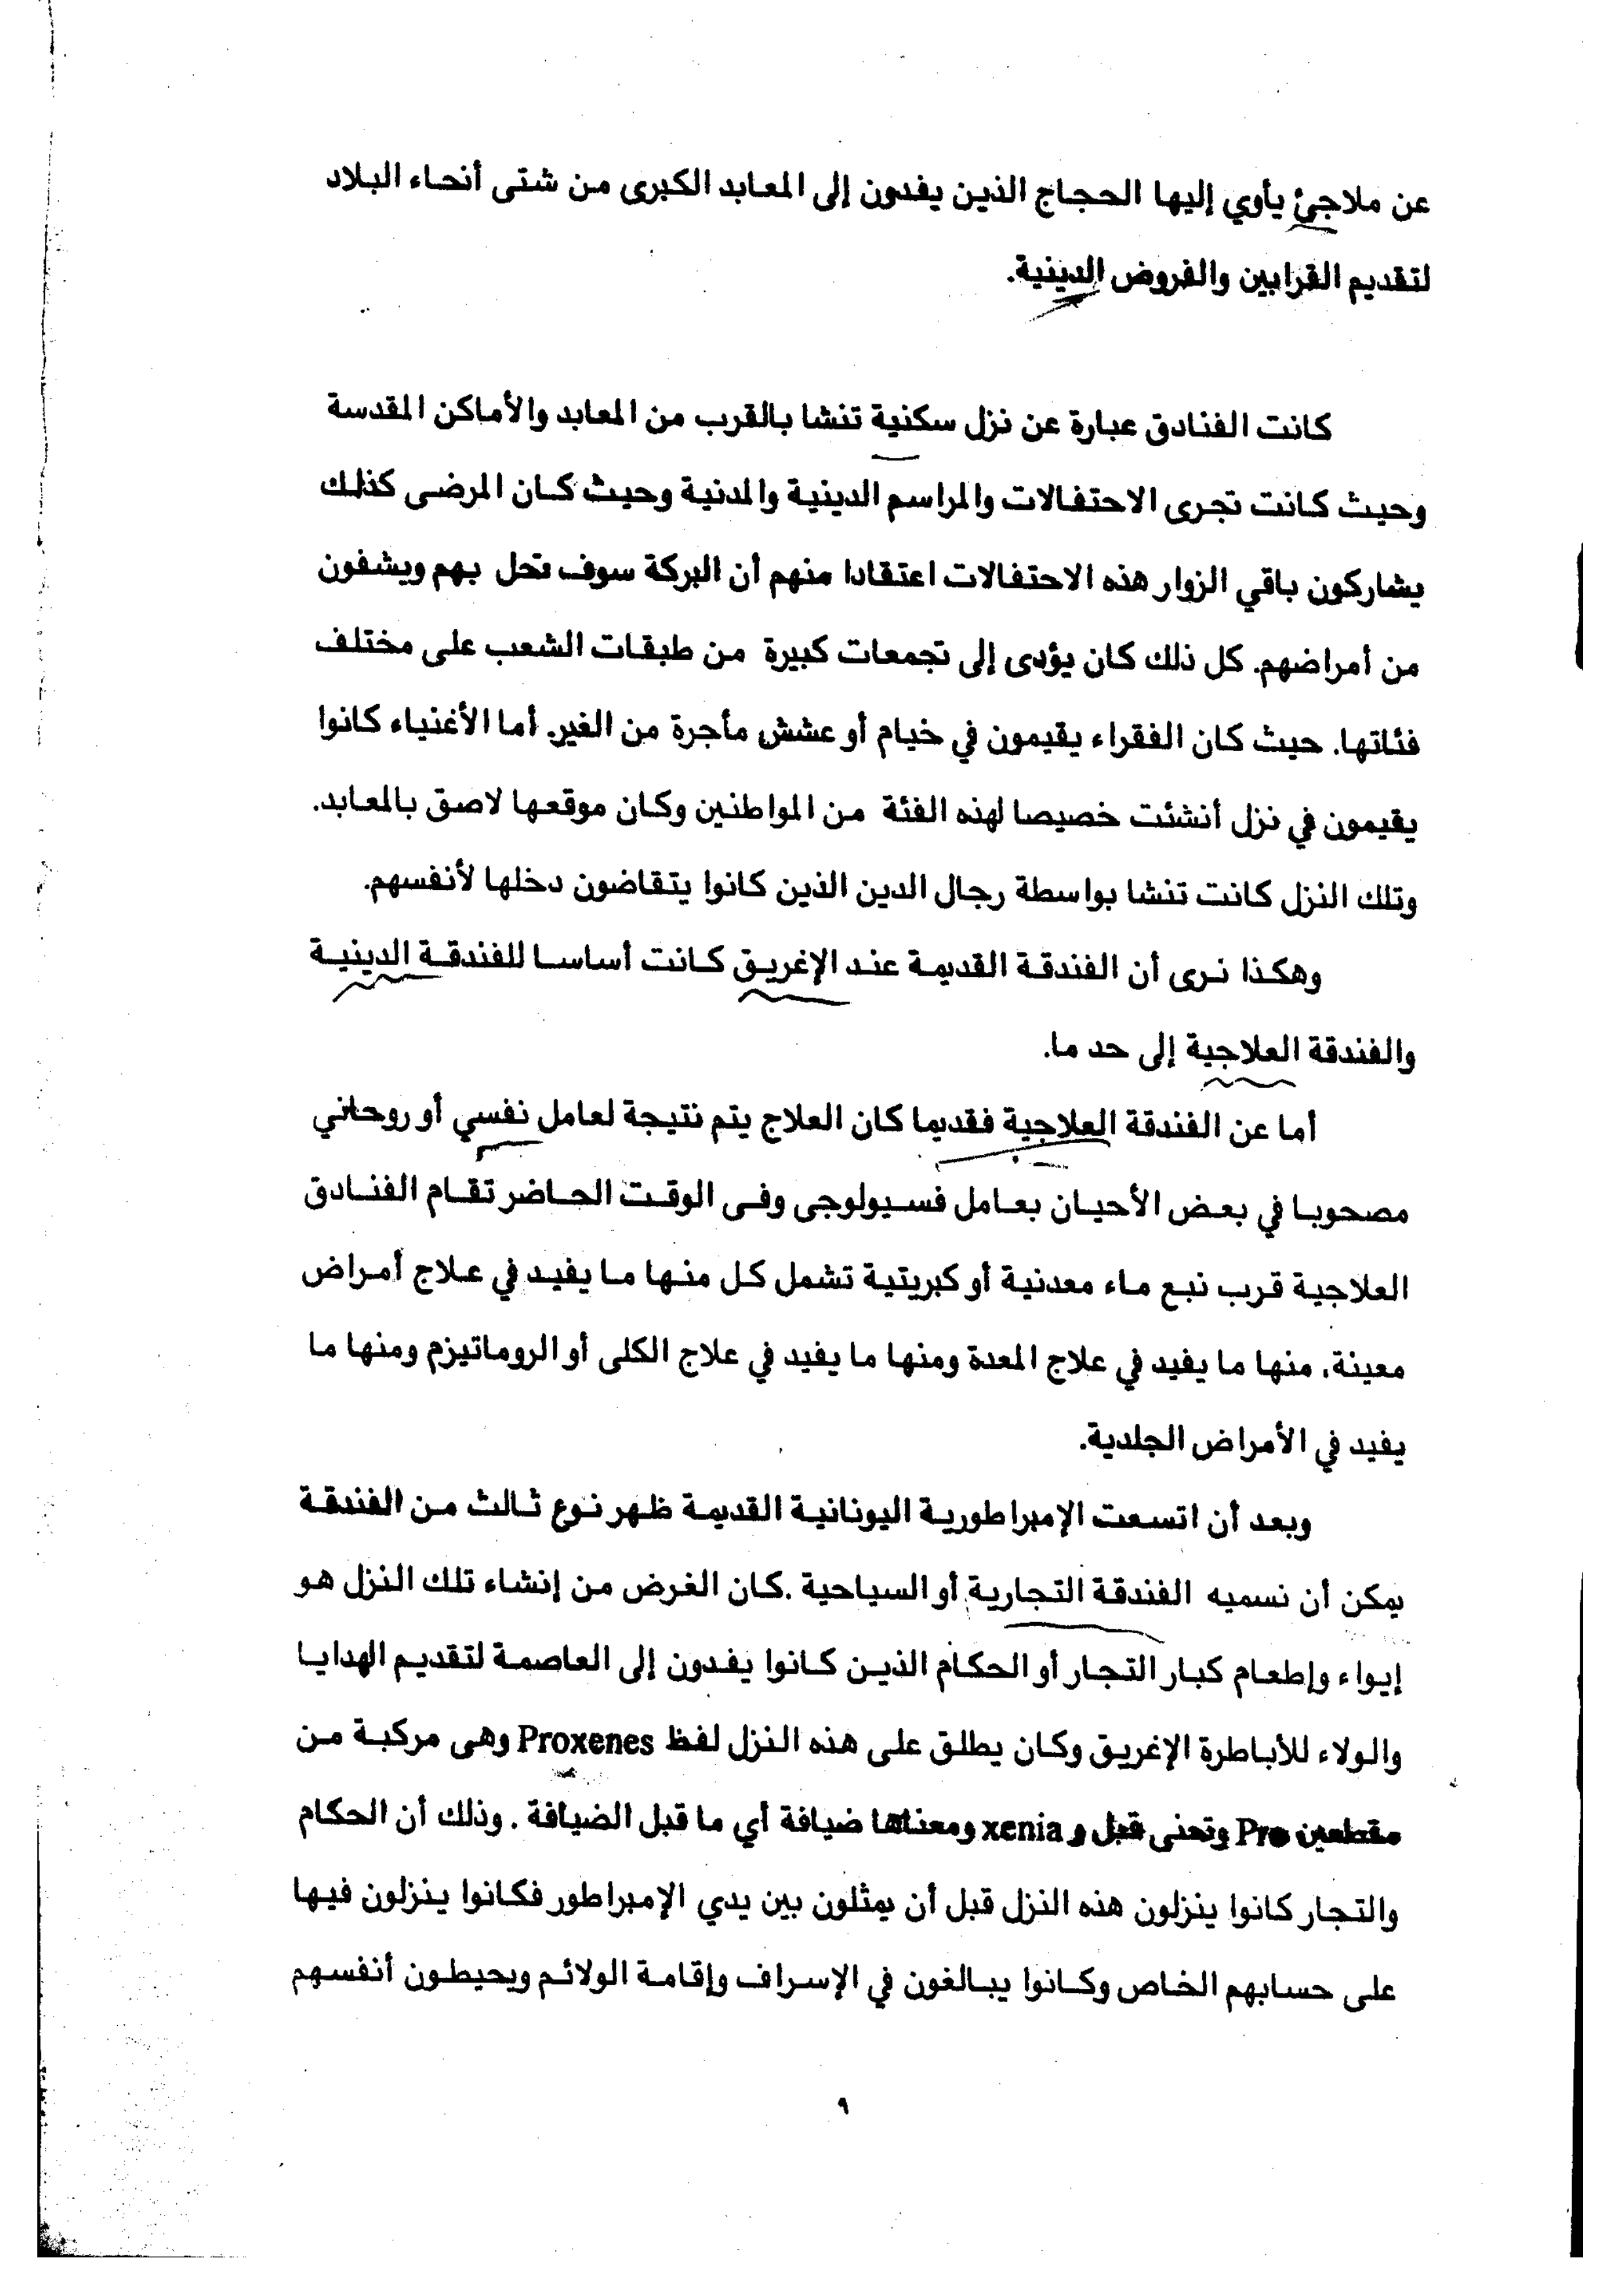 عن ملاجئ يأوي إليها الحجاج الذين يفدون إلى المعابد الكبرى من شتى أنحاء البلاد
لتقديم القرابين والفروض الدينية.
كانت الفنادق عبارة عن نزل سكنية تنشا بالقرب من المعابد والأماكن المقدسة
وحيث كانت تجرى الاحتفالات والمراسم الدينية والمدنية وحيث كان المرضى كذلك
يشاركون باقي الزوار هذه الاحتفالات اعتقادا منهم أن البركة سوف تحل بهم ويشفون
من أمراضهم. كل ذلك كان يؤدى إلى تجمعات كبيرة من طبقات الشعب على مختلف
فئاتها. حيث كان الفقراء يقيمون في خيام أو عشش مأجرة من الغير. أما الأغنياء كانوا
يقيمون في نزل أنشئت خصيصا لهذه الفئة من المواطنين وكان موقعها لاصق بالمعابد.
وتلك النزل كانت تنشا بواسطة رجال الدين الذين كانوا يتقاضون دخلها لأنفسهم.
وهكذا نرى أن الفندقة القديمة عند الإغريق كانت أساسا للفندقة الدينية
والفندقة العلاجية إلى حد ما.
أما عن الفندقة العلاجية فقديما كان العلاج يتم نتيجة لعامل نفسي أو روحاني
مصحوبا في بعض الأحيان بعامل فسيولوجى وفى الوقت الحاضر تقام الفنادق
العلاجية قرب نبع ماء معدنية أو كبريتية تشمل كل منها ما يفيد في علاج أمراض
معينة. منها ما يفيد في علاج المعدة ومنها ما يفيد في علاج الكلى أو الروماتيزم ومنها ما
يفيد في الأمراض الجلدية.
وبعد أن اتسعت الإمبراطورية اليونانية القديمة ظهر نوع ثالث من الفندقة
يمكن أن نسميه الفندقة التجارية أو السياحية .كان الغرض من إنشاء تلك النزل هو
إيواء وإطعام كبار التجار أو الحكام الذين كانوا يفدون إلى العاصمة لتقديم الهدايا
والولاء للأباطرة الإغريق وكان يطلق على هذه النزل لفظ Proxenes وهى مركبة من
مقطعين Pro وتعنى قبل و xenia ومعناها ضيافة أي ما قبل الضيافة . وذلك أن الحكام
والتجار كانوا ينزلون هذه النزل قبل أن يمثلون بين يدي الإمبراطور فكانوا ينزلون فيها
على حسابهم الخاص وكانوا يبالغون في الإسراف وإقامة الولائم ويحيطون أنفسهم
٩